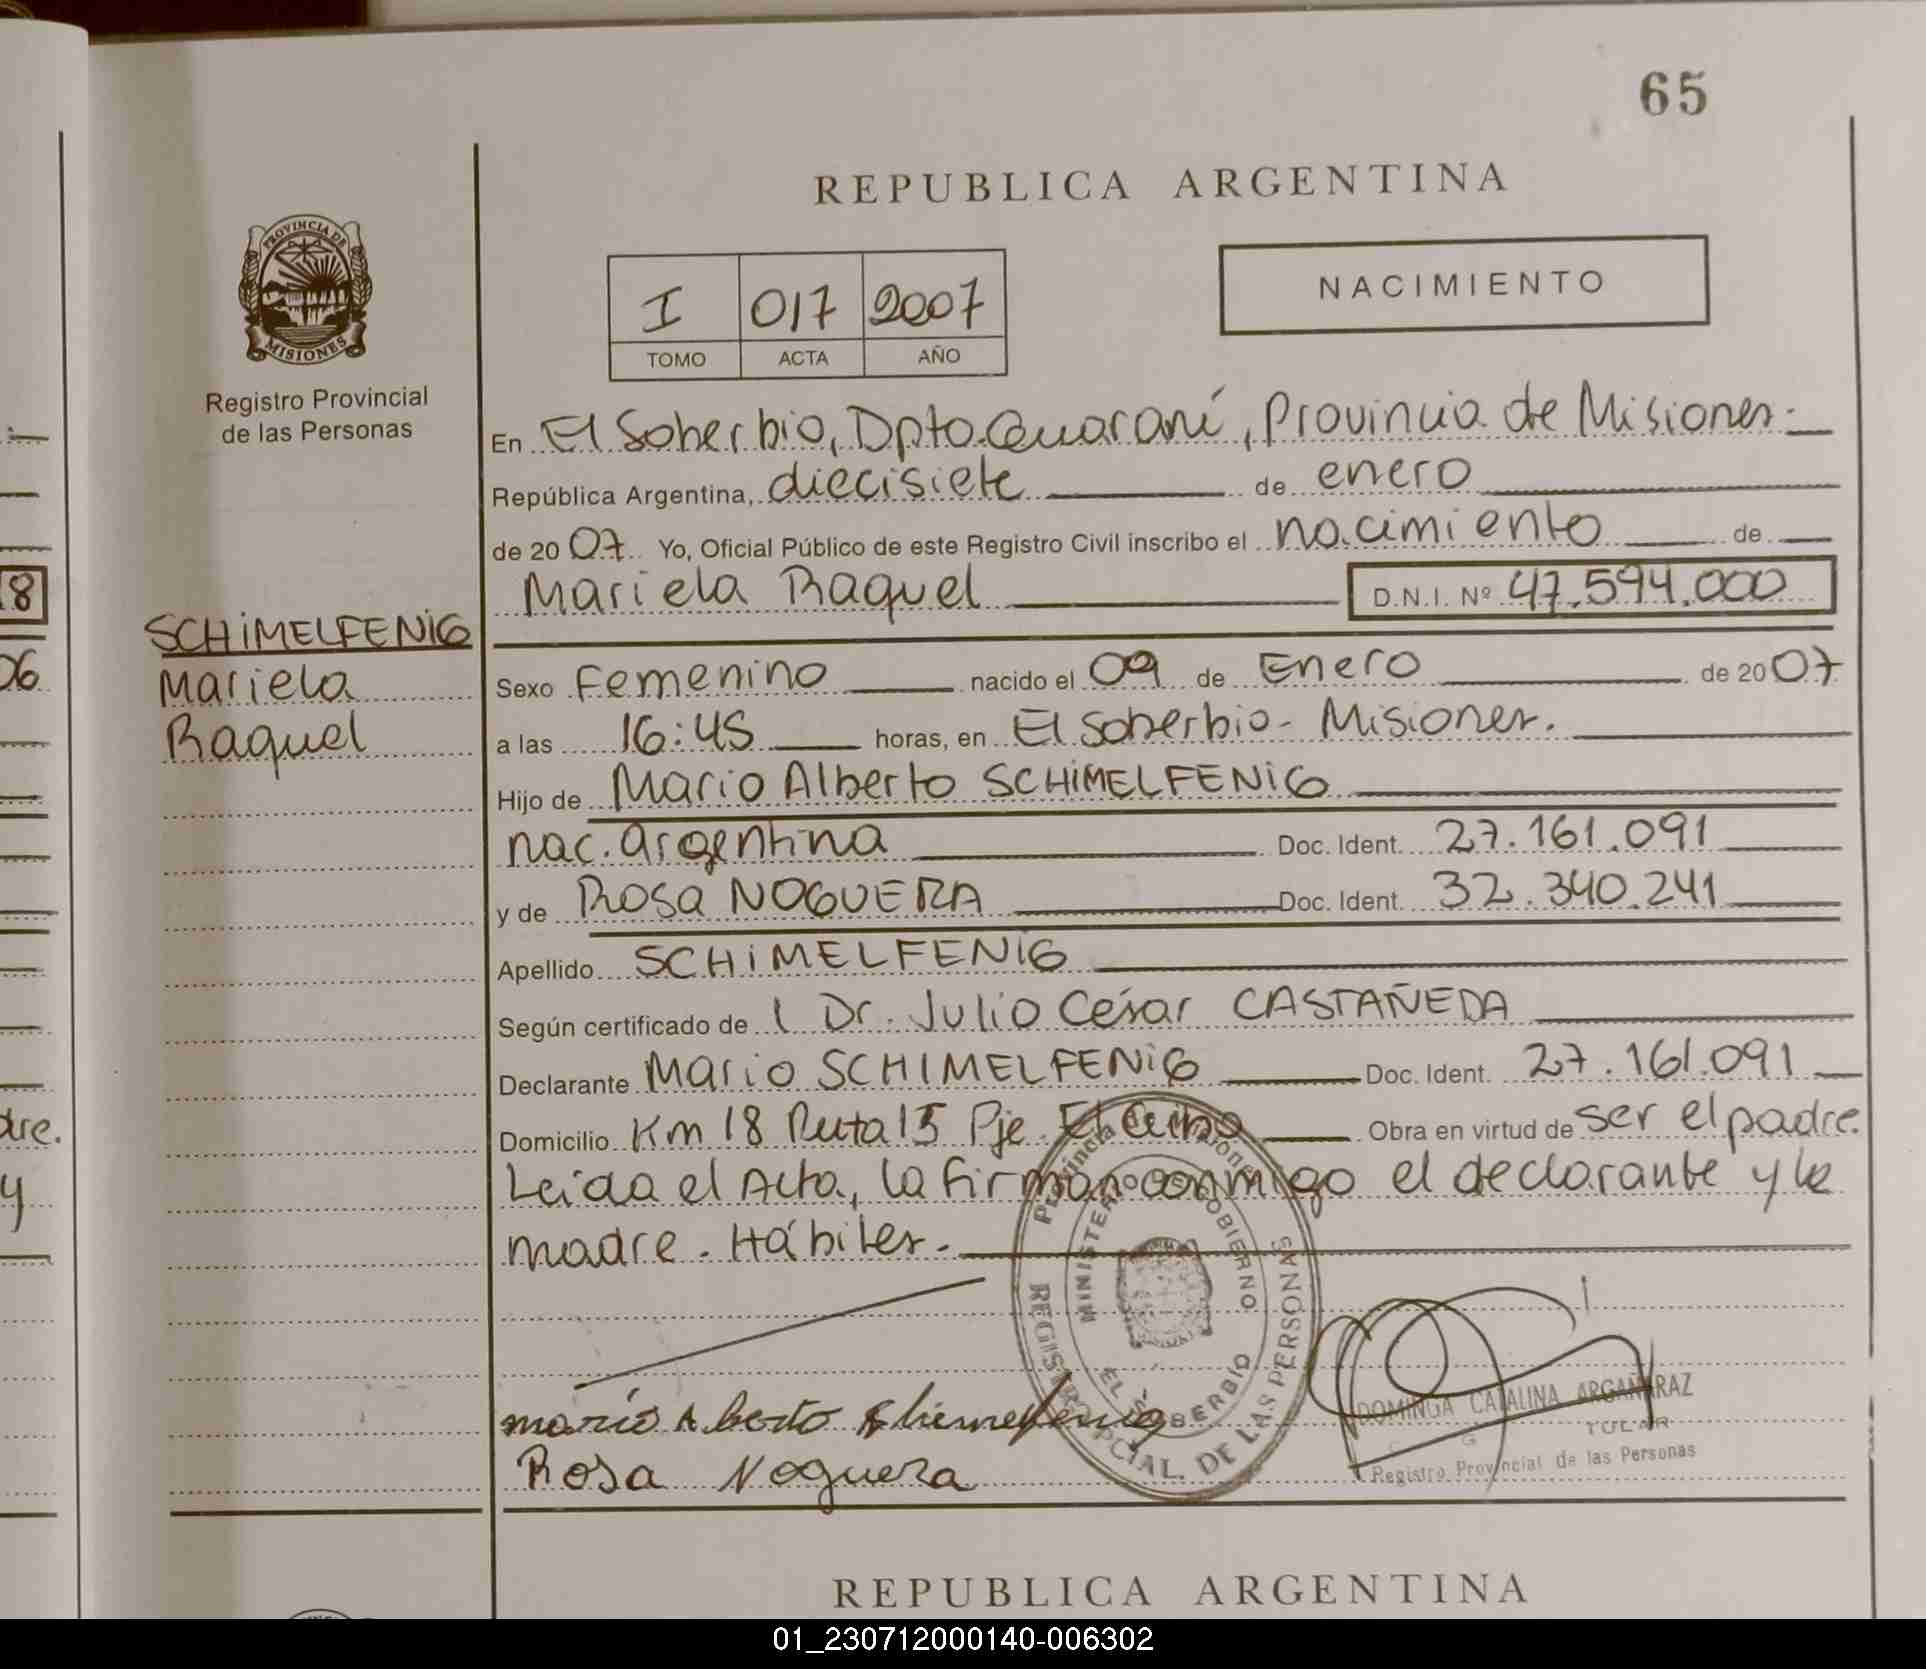 65
REPUBLICA ARGENTINA
PROVINCIA DE
MISIONES
Registro Provincial
de las Personas
I 017 2007
TOMO ACTA AÑO
NACIMIENTO
En El Soberbio, Dpto. Guaraní, Provincia de Misiones.
República Argentina, diecisiete de enero
de 2007 Yo, Oficial Público de este Registro Civil inscribo el nacimiento de
Mariela Raquel D.N.I. Nº 47.594.000
SCHiMELFENiG
Mariela
Raquel
Sexo Femenino nacido el 09 de Enero de 2007
a las 16:45 horas, en El Soberbio - Misiones.
Hijo de Mario Alberto SCHiMELFENiG
nac. argentina Doc. Ident. 27.161.091
y de Rosa NOGUERA Doc. Ident. 32.340.241
Apellido SCHiMELFENiG
Según certificado de l Dr. Julio César CASTAÑEDA
Declarante Mario SCHIMELFENiG Doc. Ident. 27.161.091
Domicilio Km 18 Ruta 15 Pje. El Ceibo Obra en virtud de ser el padre.
Leida el Acta, la firman conmigo el declarante y la
madre. Hábiles.
Provincia de Misiones
MINISTERIO GOBIERNO
REGISTRO PROVINCIAL DE LAS PERSONAS
EL SOBERBIO
mario Alberto
Rosa Noguera
DOMINGA CATALINA ARGAÑARAZ
Registro Provincial de las Personas
REPUBLICA ARGENTINA
8
06
dre.
y
01_230712000140-006302